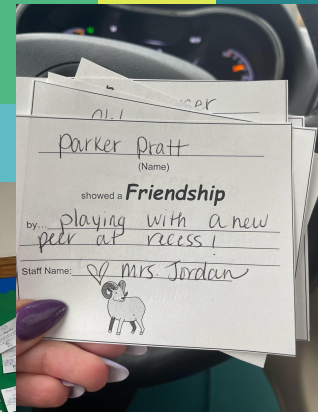 Parker Pratt
(Name)
showed a Friendship
by... playing with a new
peer at recess!
Staff Name: ♡ Mrs. Jordan